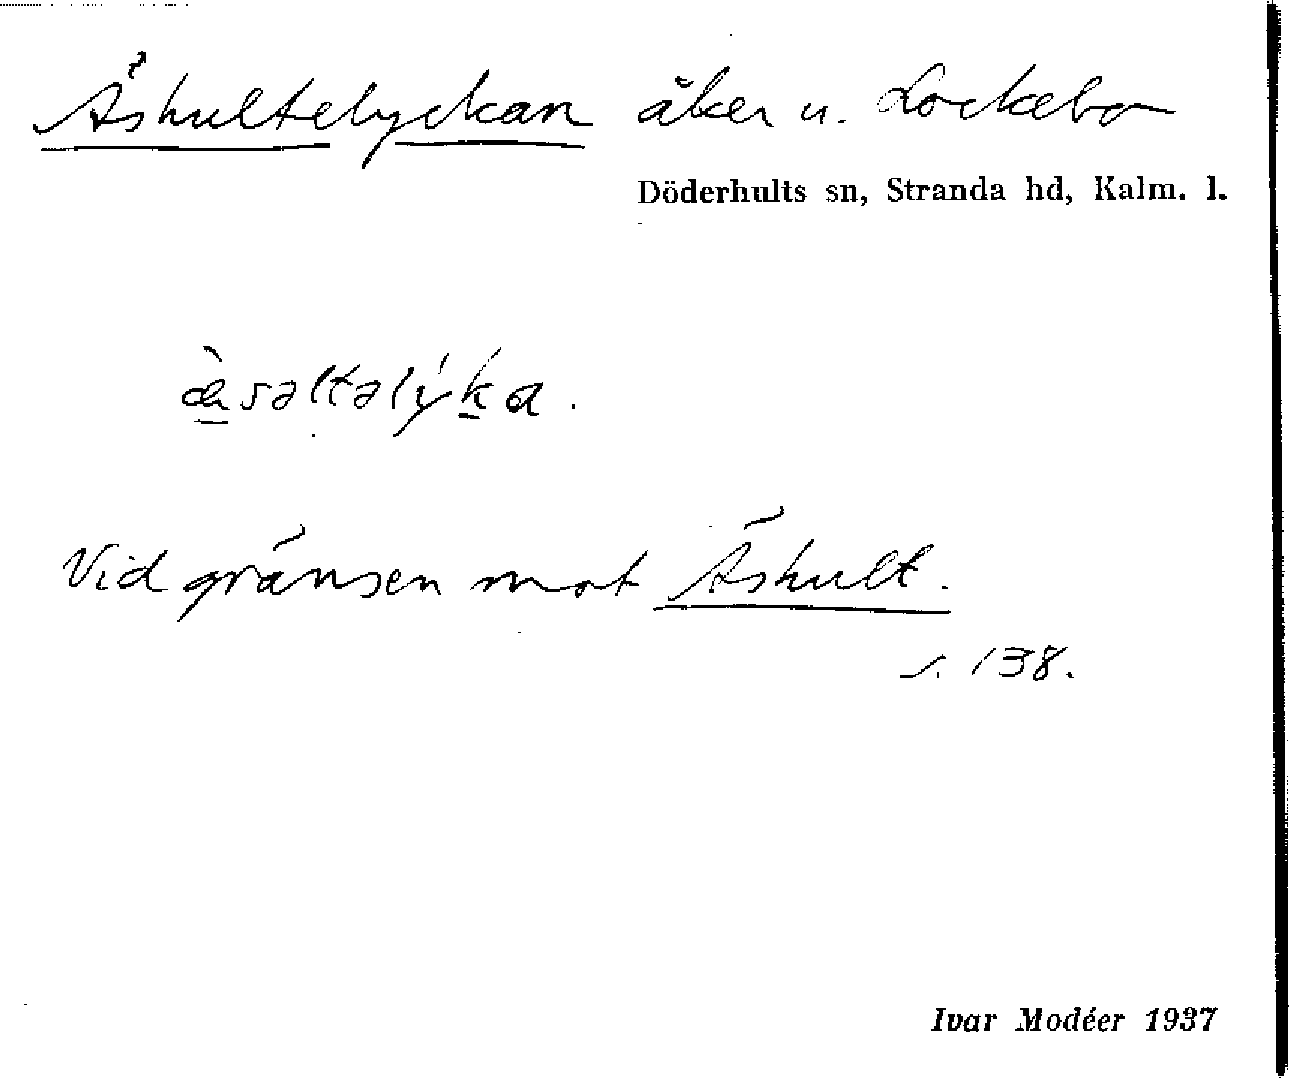 Äshultelyckan åker u. Lockebo
Döderhults sn, Stranda hd, Kalm. l.
æ̀səltəlýka.
Vid gränsen mot Äshult.
s. 138.
Ivar Modéer 1937